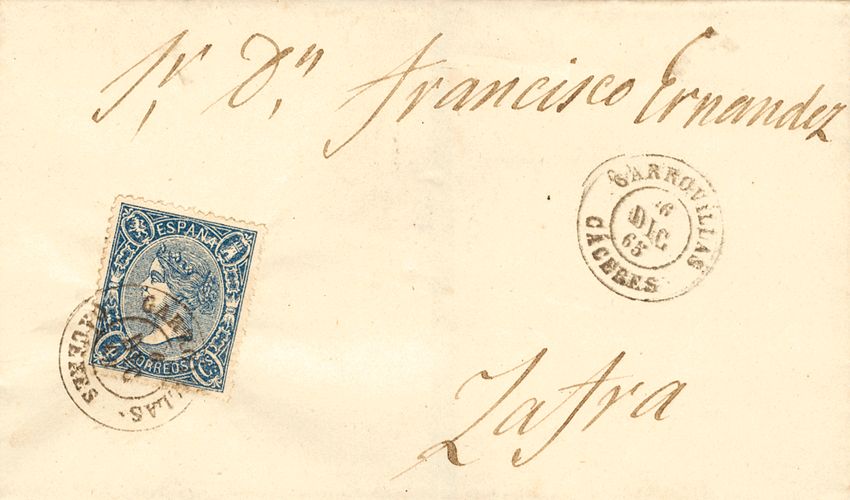 Sr. Dn. Francisco Ernandez
GARROVILLAS
DIC
65
CACERES
ESPAÑA
4 4
CORREOS
4 Cs
Zafra